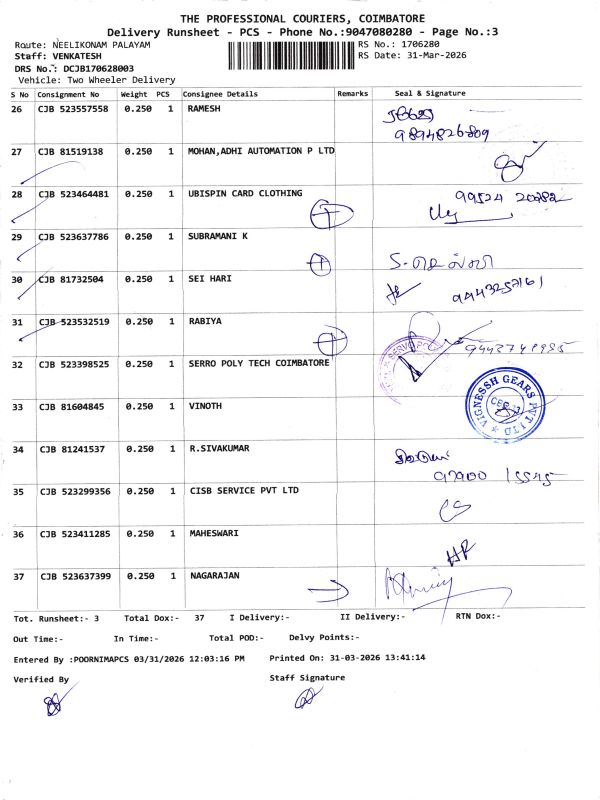 THE PROFESSIONAL COURIERS, COIMBATORE
Delivery Runsheet - PCS - Phone No.:9047080280 - Page No.:3
Route: NEELIKONAM PALAYAM RS No.: 1706280
Staff: VENKATESH RS Date: 31-Mar-2026
DRS No.: DCJB170628003
Vehicle: Two Wheeler Delivery
S No Consignment No Weight PCS Consignee Details Remarks Seal & Signature
26 CJB 523557558 0.250 1 RAMESH
9894826809
27 CJB 81519138 0.250 1 MOHAN,ADHI AUTOMATION P LTD
28 CJB 523464481 0.250 1 UBISPIN CARD CLOTHING
29 CJB 523637786 0.250 1 SUBRAMANI K
30 CJB 81732504 0.250 1 SEI HARI
31 CJB 523532519 0.250 1 RABIYA
32 CJB 523398525 0.250 1 SERRO POLY TECH COIMBATORE
VIGNESSH GEARS PVT LTD
33 CJB 81604845 0.250 1 VINOTH
34 CJB 81241537 0.250 1 R.SIVAKUMAR
35 CJB 523299356 0.250 1 CISB SERVICE PVT LTD
36 CJB 523411285 0.250 1 MAHESWARI
37 CJB 523637399 0.250 1 NAGARAJAN
Tot. Runsheet:- 3 Total Dox:- 37 I Delivery:- II Delivery:- RTN Dox:-
Out Time:- In Time:- Total POD:- Delvy Points:-
Entered By :POORNIMAPCS 03/31/2026 12:03:16 PM Printed On: 31-03-2026 13:41:14
Verified By Staff Signature